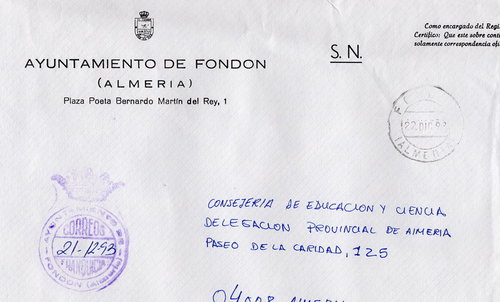 Como encargado del Regi
Certifico: Que este sobre conti
solamente correspondencia ofi
S. N.
AYUNTAMIENTO DE FONDON
(ALMERIA)
Plaza Poeta Bernardo Martín del Rey, 1
22 DIC 93
(ALMERIA)
AYUNTAMIENTO DE
CORREOS
21-12-93
FRANQUICIA
FONDON (Almería)
CONSEJERIA DE EDUCACION Y CIENCIA
DELEGACION PROVINCIAL DE ALMERIA
PASEO DE LA CARIDAD, 125
04008 ALMERIA